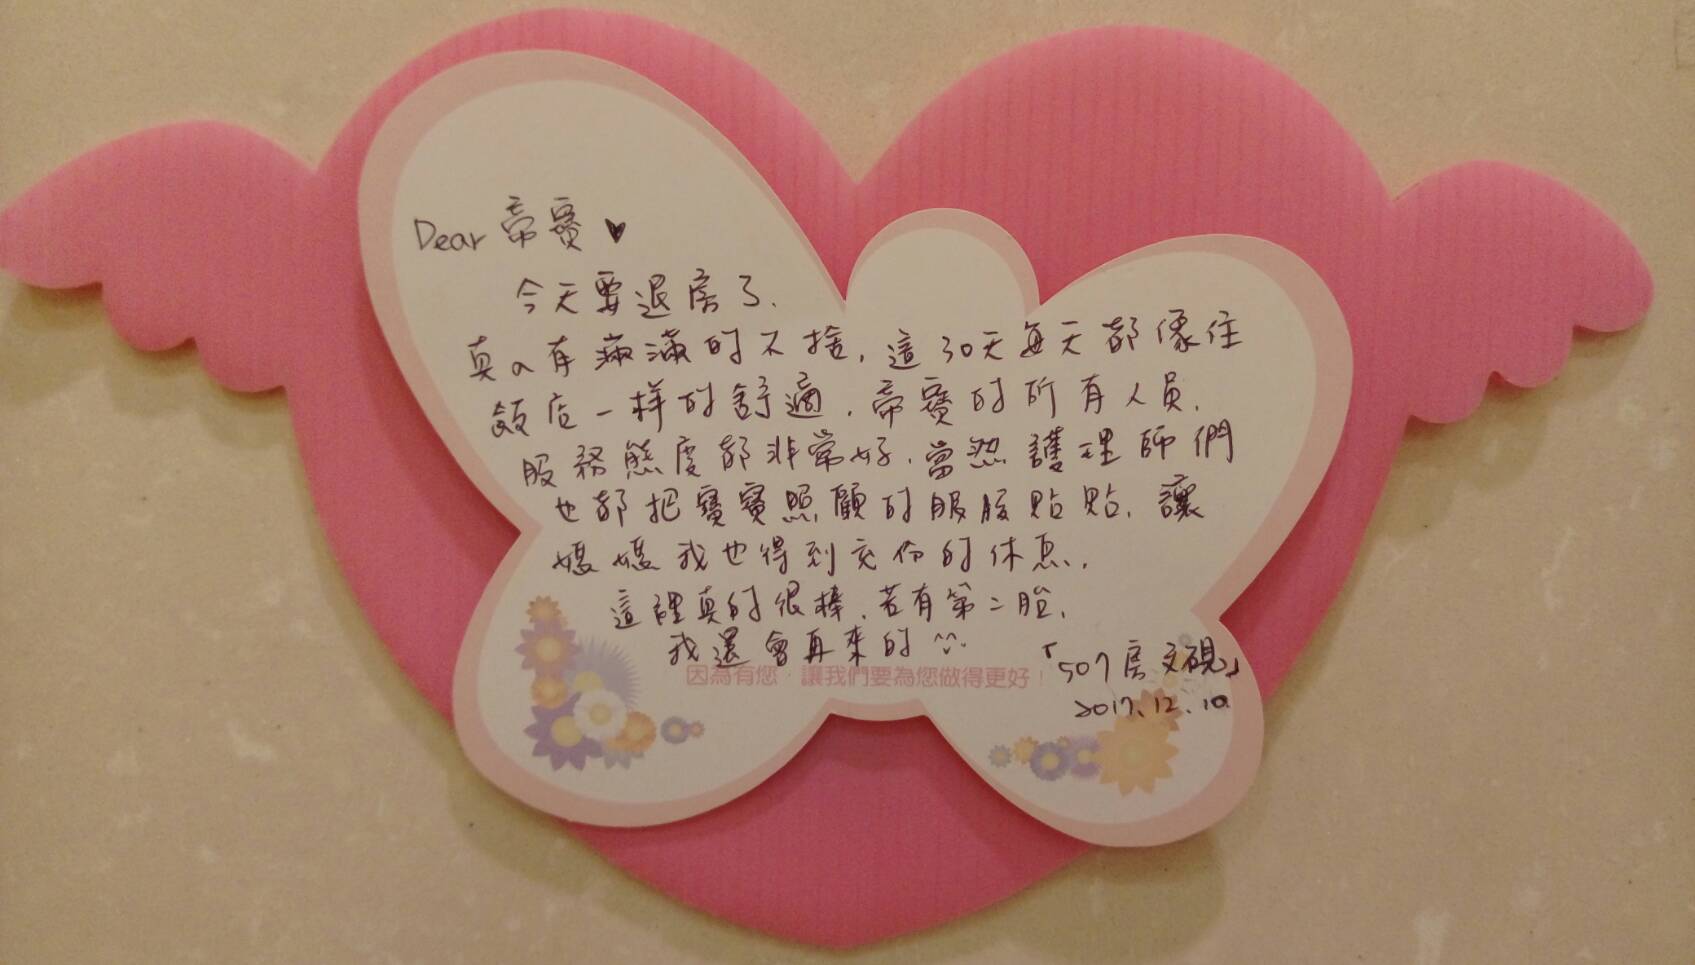 Dear 帝寶 ♥
今天要退房了、
真的有滿滿的不捨，這30天每天都像住
飯店一樣的舒適，帝寶的所有人員，
服務態度都非常好，當然護理師們
也都把寶寶照顧的服服貼貼，讓
媽媽我也得到充份的休息，
這裡真的很棒，若有第二胎，
我還會再來的 ^^
因為有您，讓我們要為您做得更好！
「507房文硯」
2017.12.10